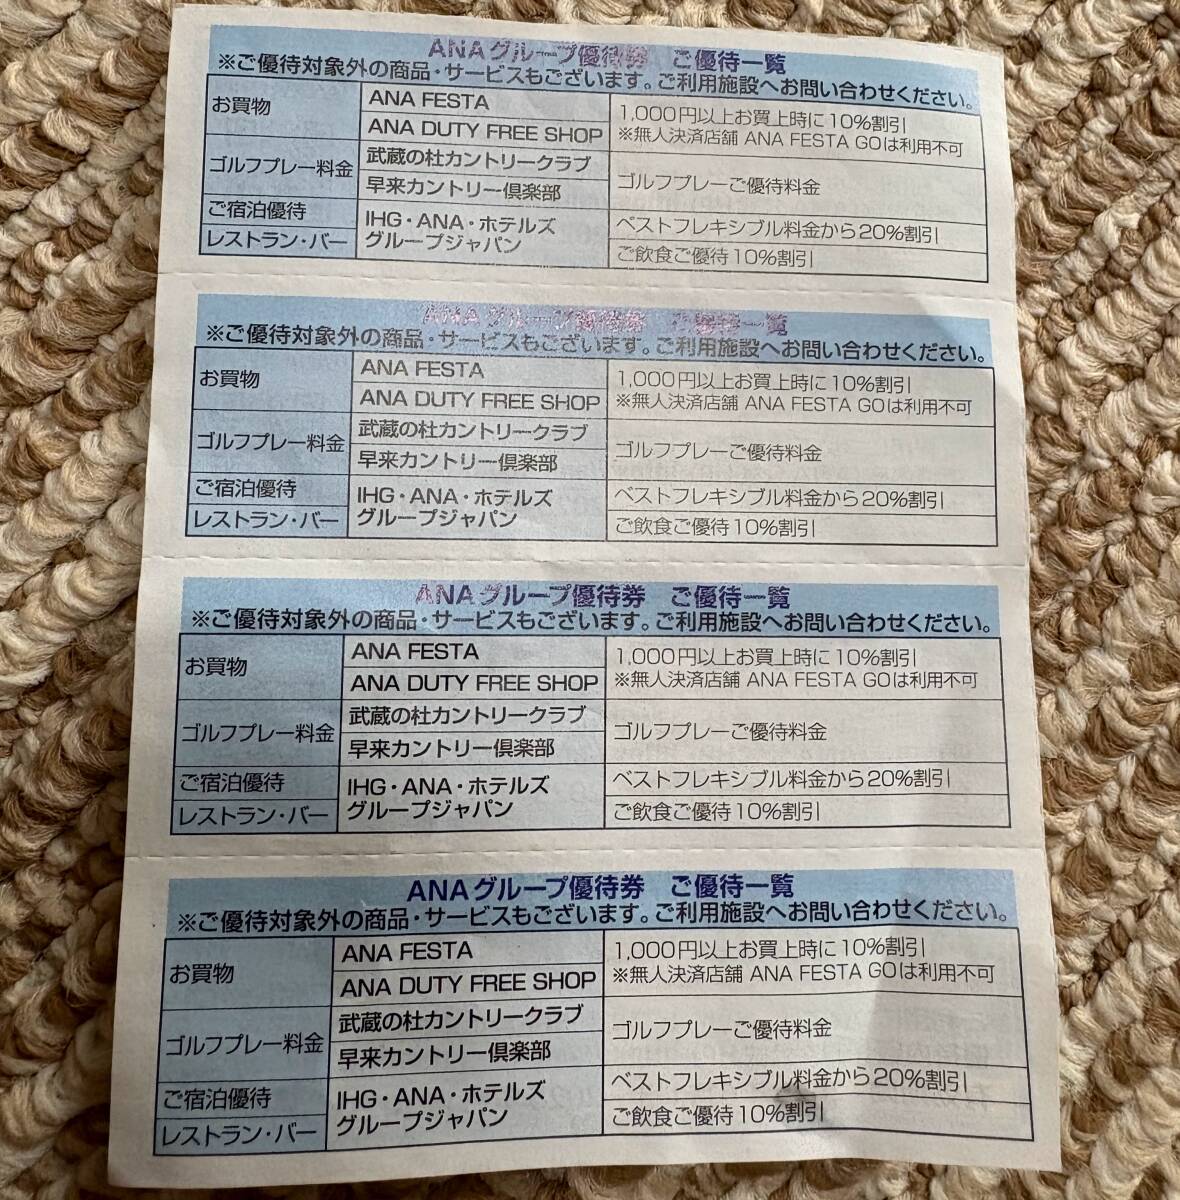 ANAグループ優待券 ご優待一覧
※ご優待対象外の商品・サービスもございます。ご利用施設へお問い合わせください。
お買物
ANA FESTA
ANA DUTY FREE SHOP
1,000円以上お買上時に10%割引
※無人決済店舗 ANA FESTA GOは利用不可
ゴルフプレー料金
武蔵の杜カントリークラブ
早来カントリー倶楽部
ゴルフプレーご優待料金
ご宿泊優待
レストラン・バー
IHG・ANA・ホテルズ
グループジャパン
ベストフレキシブル料金から20%割引
ご飲食ご優待10%割引
ANAグループ優待券 ご優待一覧
※ご優待対象外の商品・サービスもございます。ご利用施設へお問い合わせください。
お買物
ANA FESTA
ANA DUTY FREE SHOP
1,000円以上お買上時に10%割引
※無人決済店舗 ANA FESTA GOは利用不可
ゴルフプレー料金
武蔵の杜カントリークラブ
早来カントリー倶楽部
ゴルフプレーご優待料金
ご宿泊優待
レストラン・バー
IHG・ANA・ホテルズ
グループジャパン
ベストフレキシブル料金から20%割引
ご飲食ご優待10%割引
ANAグループ優待券 ご優待一覧
※ご優待対象外の商品・サービスもございます。ご利用施設へお問い合わせください。
お買物
ANA FESTA
ANA DUTY FREE SHOP
1,000円以上お買上時に10%割引
※無人決済店舗 ANA FESTA GOは利用不可
ゴルフプレー料金
武蔵の杜カントリークラブ
早来カントリー倶楽部
ゴルフプレーご優待料金
ご宿泊優待
レストラン・バー
IHG・ANA・ホテルズ
グループジャパン
ベストフレキシブル料金から20%割引
ご飲食ご優待10%割引
ANAグループ優待券 ご優待一覧
※ご優待対象外の商品・サービスもございます。ご利用施設へお問い合わせください。
お買物
ANA FESTA
ANA DUTY FREE SHOP
1,000円以上お買上時に10%割引
※無人決済店舗 ANA FESTA GOは利用不可
ゴルフプレー料金
武蔵の杜カントリークラブ
早来カントリー倶楽部
ゴルフプレーご優待料金
ご宿泊優待
レストラン・バー
IHG・ANA・ホテルズ
グループジャパン
ベストフレキシブル料金から20%割引
ご飲食ご優待10%割引